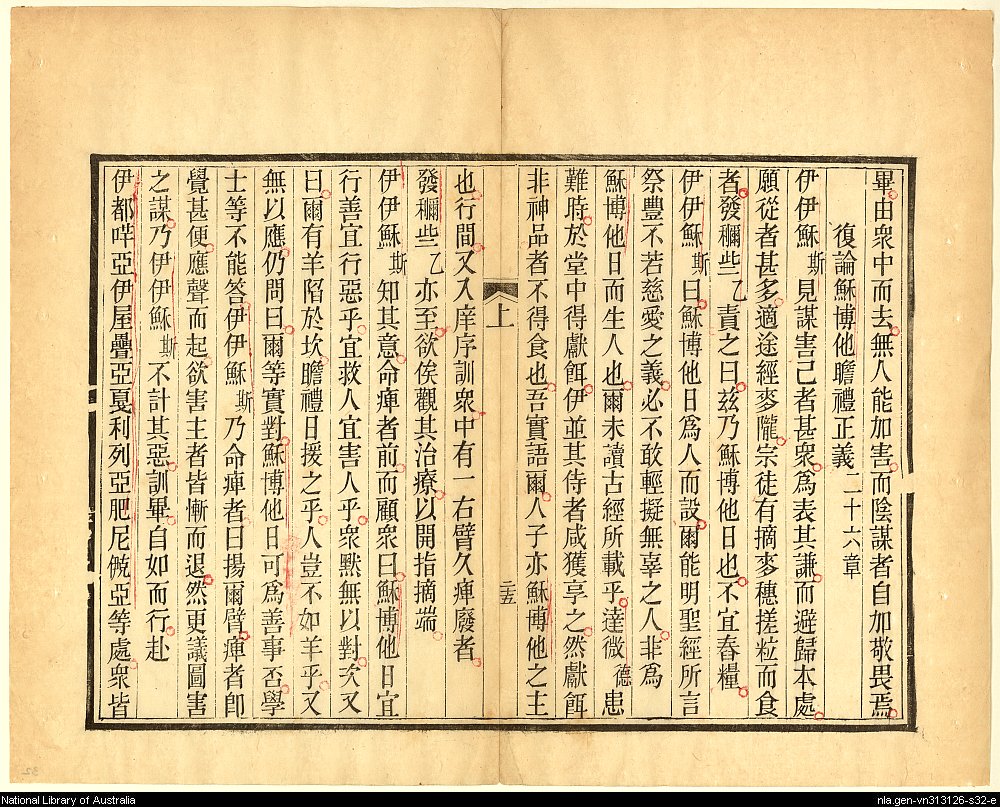 畢由衆中而去無人能加害而陰謀者自加敬畏焉
復論穌博他瞻禮正義 二十六章
伊伊穌斯見謀害己者甚衆爲表其謙而避歸本處
願從者甚多適途經麥隴宗徒有摘麥穗搓粒而食
者發穪些乙責之曰兹乃穌博他日也不宜舂糧
伊伊穌斯曰穌博他日爲人而設爾能明聖經所言
祭豐不若慈愛之義必不敢輕擬無辜之人非爲
穌博他日而生人也爾未讀古經所載乎達微德患
難時於堂中得獻餌伊並其侍者咸獲享之然獻餌
非神品者不得食也吾實語爾人子亦穌博他之主
上
二五
也行間又入庠序訓衆中有一右臂久痺廢者
發穪些乙亦至欲俟觀其治療以開指摘端
伊伊穌斯知其意命痺者前而顧衆曰穌博他日宜
行善宜行惡乎宜救人宜害人乎衆默無以對次又
曰爾有羊陷於坎瞻禮日援之乎人豈不如羊乎又
無以應仍問曰爾等實對穌博他日可爲善事否學
士等不能答伊伊穌斯乃命痺者曰揚爾臂痺者卽
覺甚便應聲而起欲害主者皆慚而退然更議圖害
之謀乃伊伊穌斯不計其惡訓畢自如而行赴
伊都哶亞伊屋疊亞戛利列亞肥尼㑹亞等處衆皆
National Library of Australia
nla.gen-vn313126-s32-e